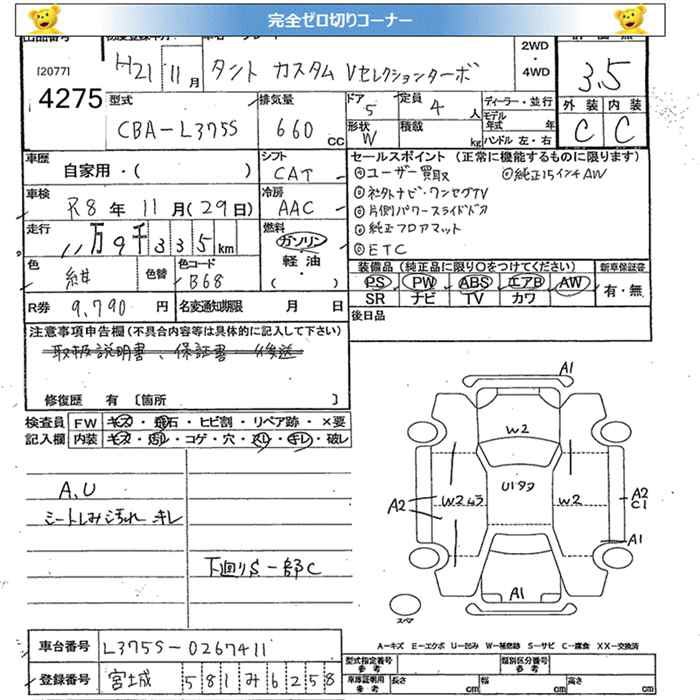 完全ゼロ切りコーナー
[2077]
4275
H21 11月
タント カスタム Vセレクションターボ
2WD
・
4WD
3.5
型式
CBA-L375S
排気量
660 cc
ドア
5
定員
4 人
形状
W
積載
kg
ディーラー・並行
モデル年式 年
ハンドル 左・右
外装 内装
C C
車歴
自家用・( )
シフト
CAT
車検
R8 年 11 月 (29 日)
冷房
AAC
走行
11万9千335km
燃料
ガソリン
軽油
( )
色
紺
色替
色コード
B68
R券 9,790 円
名変通知期限 月 日
セールスポイント (正常に機能するものに限ります)
①ユーザー買取
①純正15インチAW
①社外ナビ・ワンセグTV
①片側パワースライドドア
①純正フロアマット
①ETC
装備品 (純正品に限り〇をつけてください)
新車保証書
PS PW ABS エアB AW
有・無
SR ナビ TV カワ
後日品
注意事項申告欄(不具合内容等は具体的に記入して下さい)
取扱説明書、保証書 後送
修復歴 有 〔箇所 〕
検査員
記入欄
FW キズ・飛石・ヒビ割・リペア跡・×要
内装 キズ・汚レ・コゲ・穴・スレ・キレ・破レ
A,U
シートしみ汚れ キレ
下廻りS一部C
A1
W2
U1タタ
A2
W2ムラ
W2
A2
C1
A1
A1
スペア
A―キズ E―エクボ U―凹み W―補修跡 S―サビ C―腐食 XX―交換済
車台番号 L375S-0267411
登録番号 宮城 581 み 6258
型式指定番号
参考
類別区分番号
参考
車庫証明用
参考
長さ cm
幅 cm
高さ cm